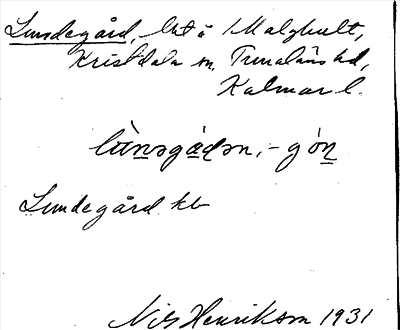 Lundegård, lht å Malghult,
Kristdala sn, Tunaläns hd,
Kalmar l.
lùnəgàdən, -gón
Lundegård kb
Nils Henrikson 1931